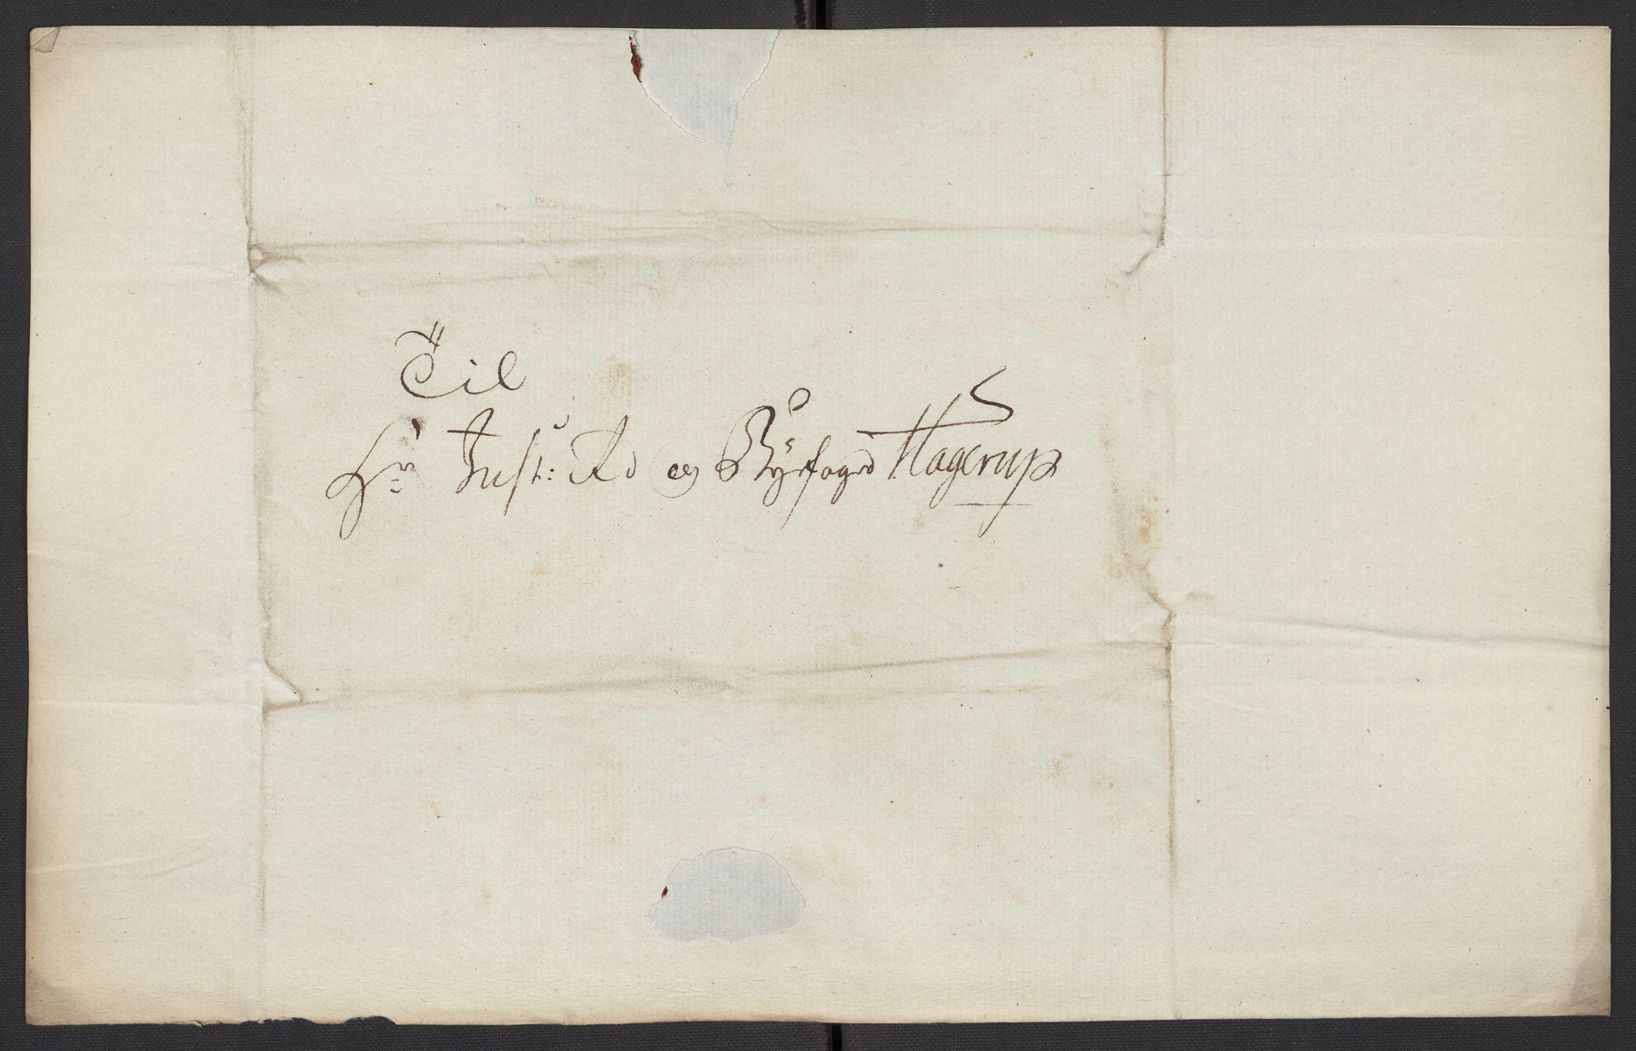 Til
Hr Just: Rd og Byefoged Hagerup